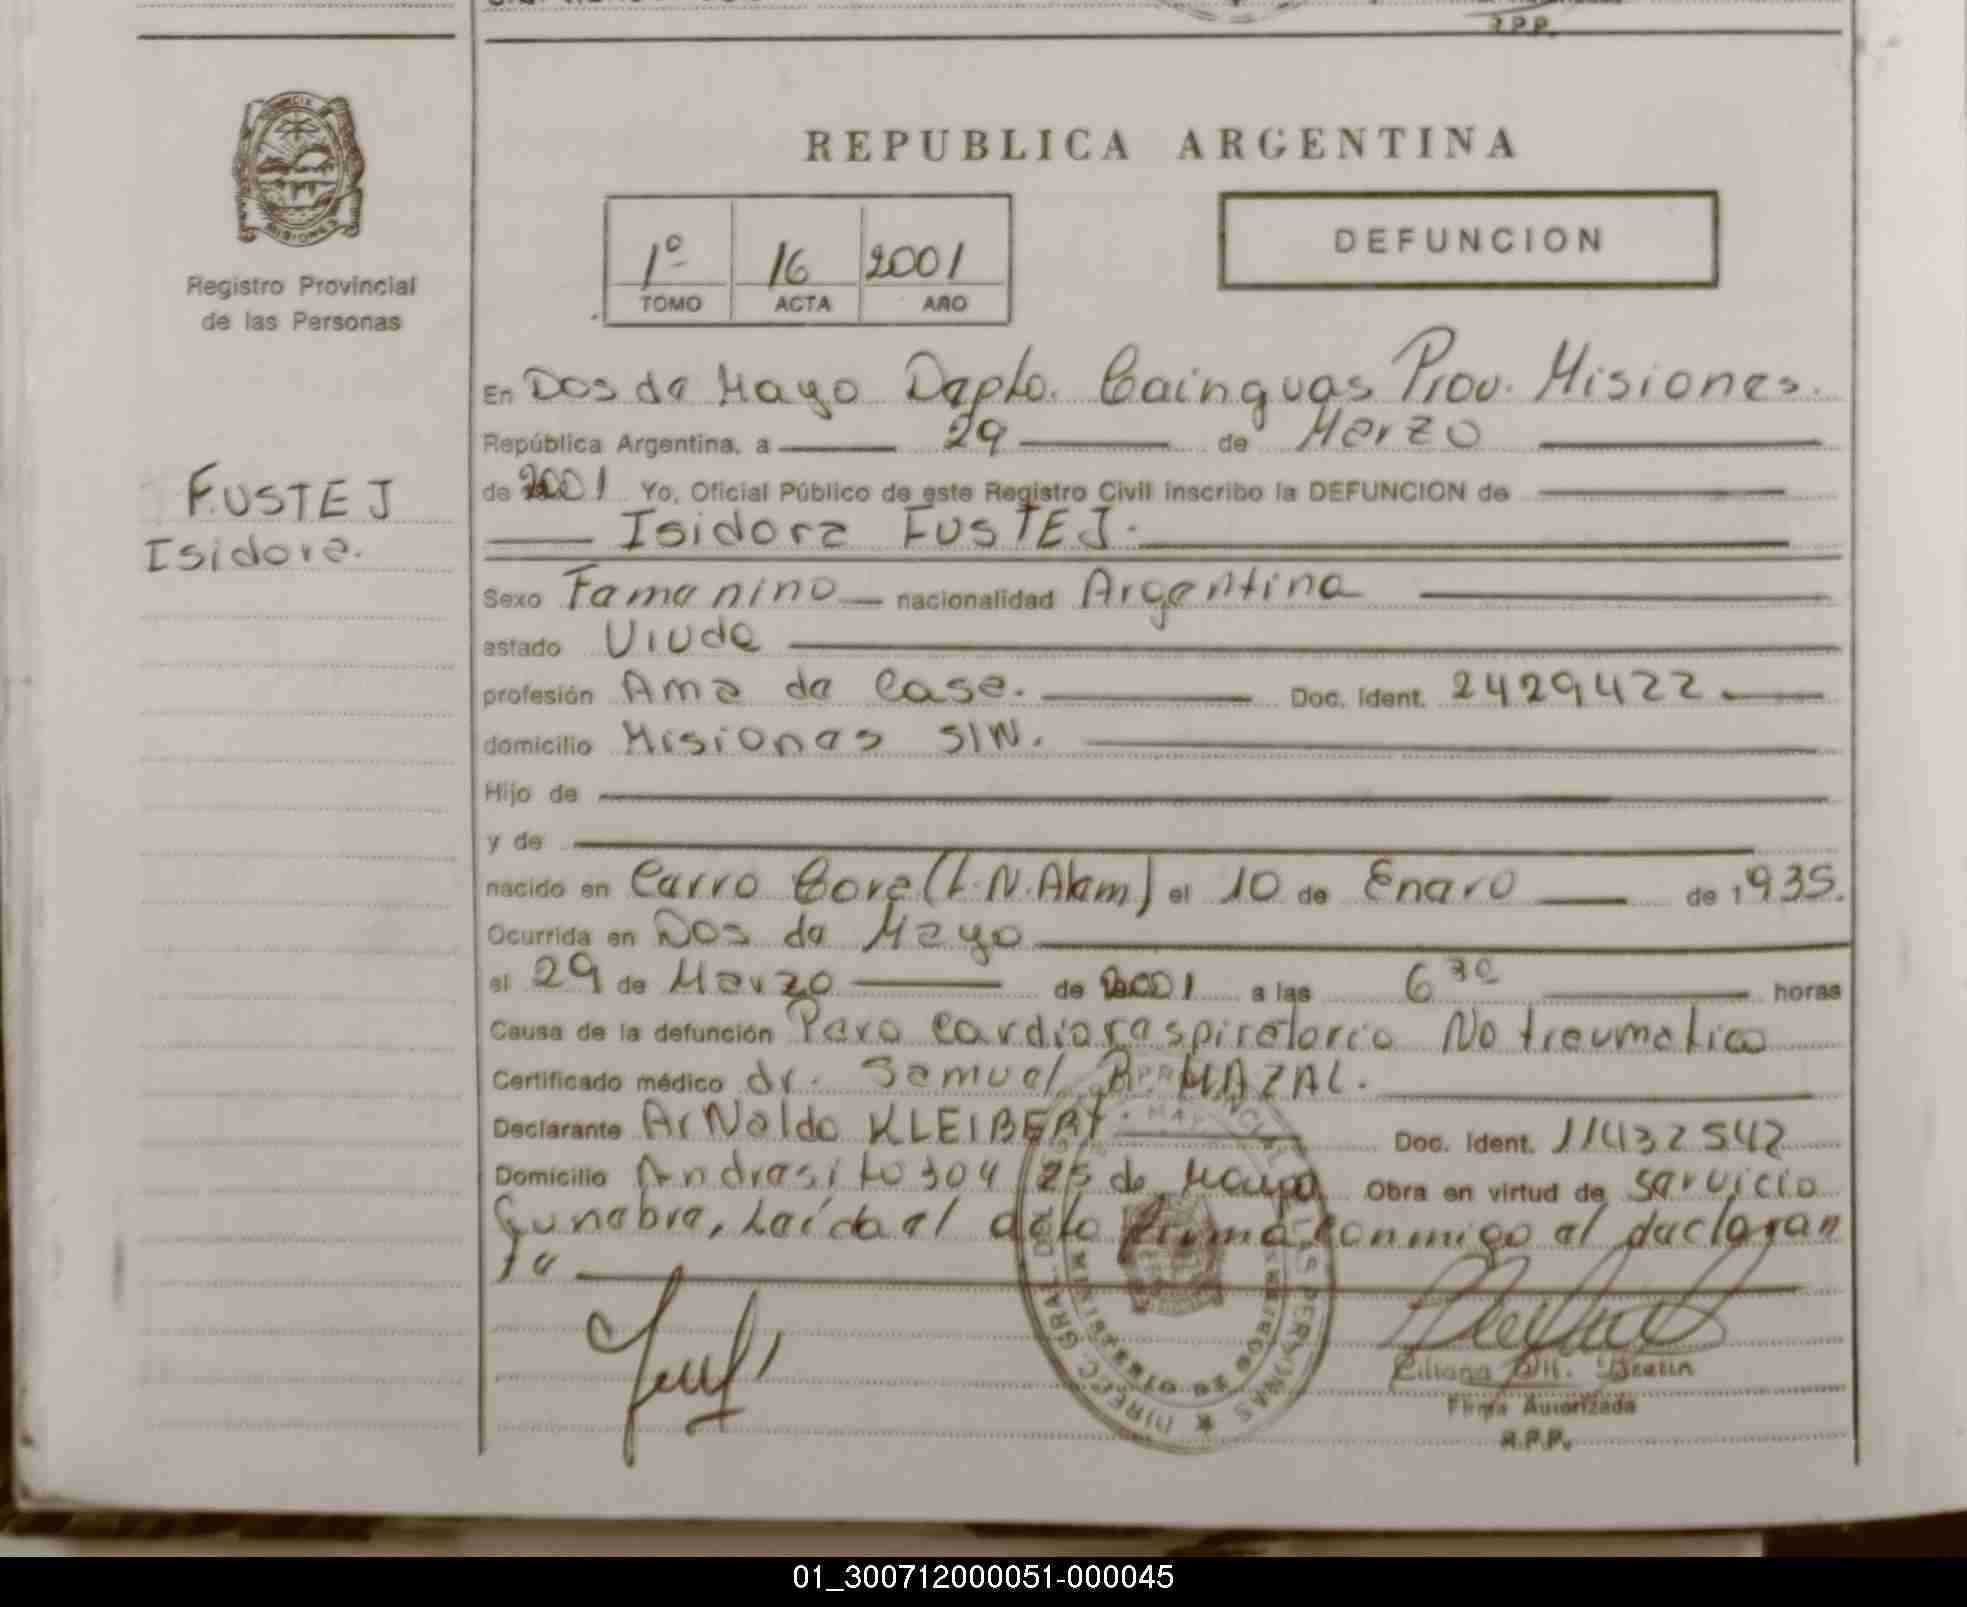 R.P.P.
REPUBLICA ARGENTINA
MISIONES
Registro Provincial
de las Personas
1º 16 2001
TOMO ACTA AÑO
DEFUNCION
FUSTEJ
Isidora.
En Dos de Mayo Depto. Cainguas Prov. Misiones.
República Argentina, a 29 de Marzo
de 2001 Yo, Oficial Público de este Registro Civil inscribo la DEFUNCION de
Isidora FUSTEJ.
Sexo Femenino nacionalidad Argentina
estado Viuda
profesión Ama de Casa. Doc. Ident. 2429422
domicilio Misiones S/N.
Hijo de
y de
nacido en Cerro Cora (L.N.Alem) el 10 de Enero de 1935.
Ocurrida en Dos de Mayo
el 29 de Marzo de 2001 a las 6 30 horas
Causa de la defunción Paro cardiorespiratorio No traumatico
Certificado médico dr. Samuel B. MAZAL.
Declarante Arnoldo KLEIBERT Doc. Ident. 11432542
Domicilio Andresito 304 25 de Mayo Obra en virtud de servicio
funebre, Leída el acta firma conmigo el declaran
te
Liliana M. Braun
Firma Autorizada
R.P.P.
01_300712000051-000045